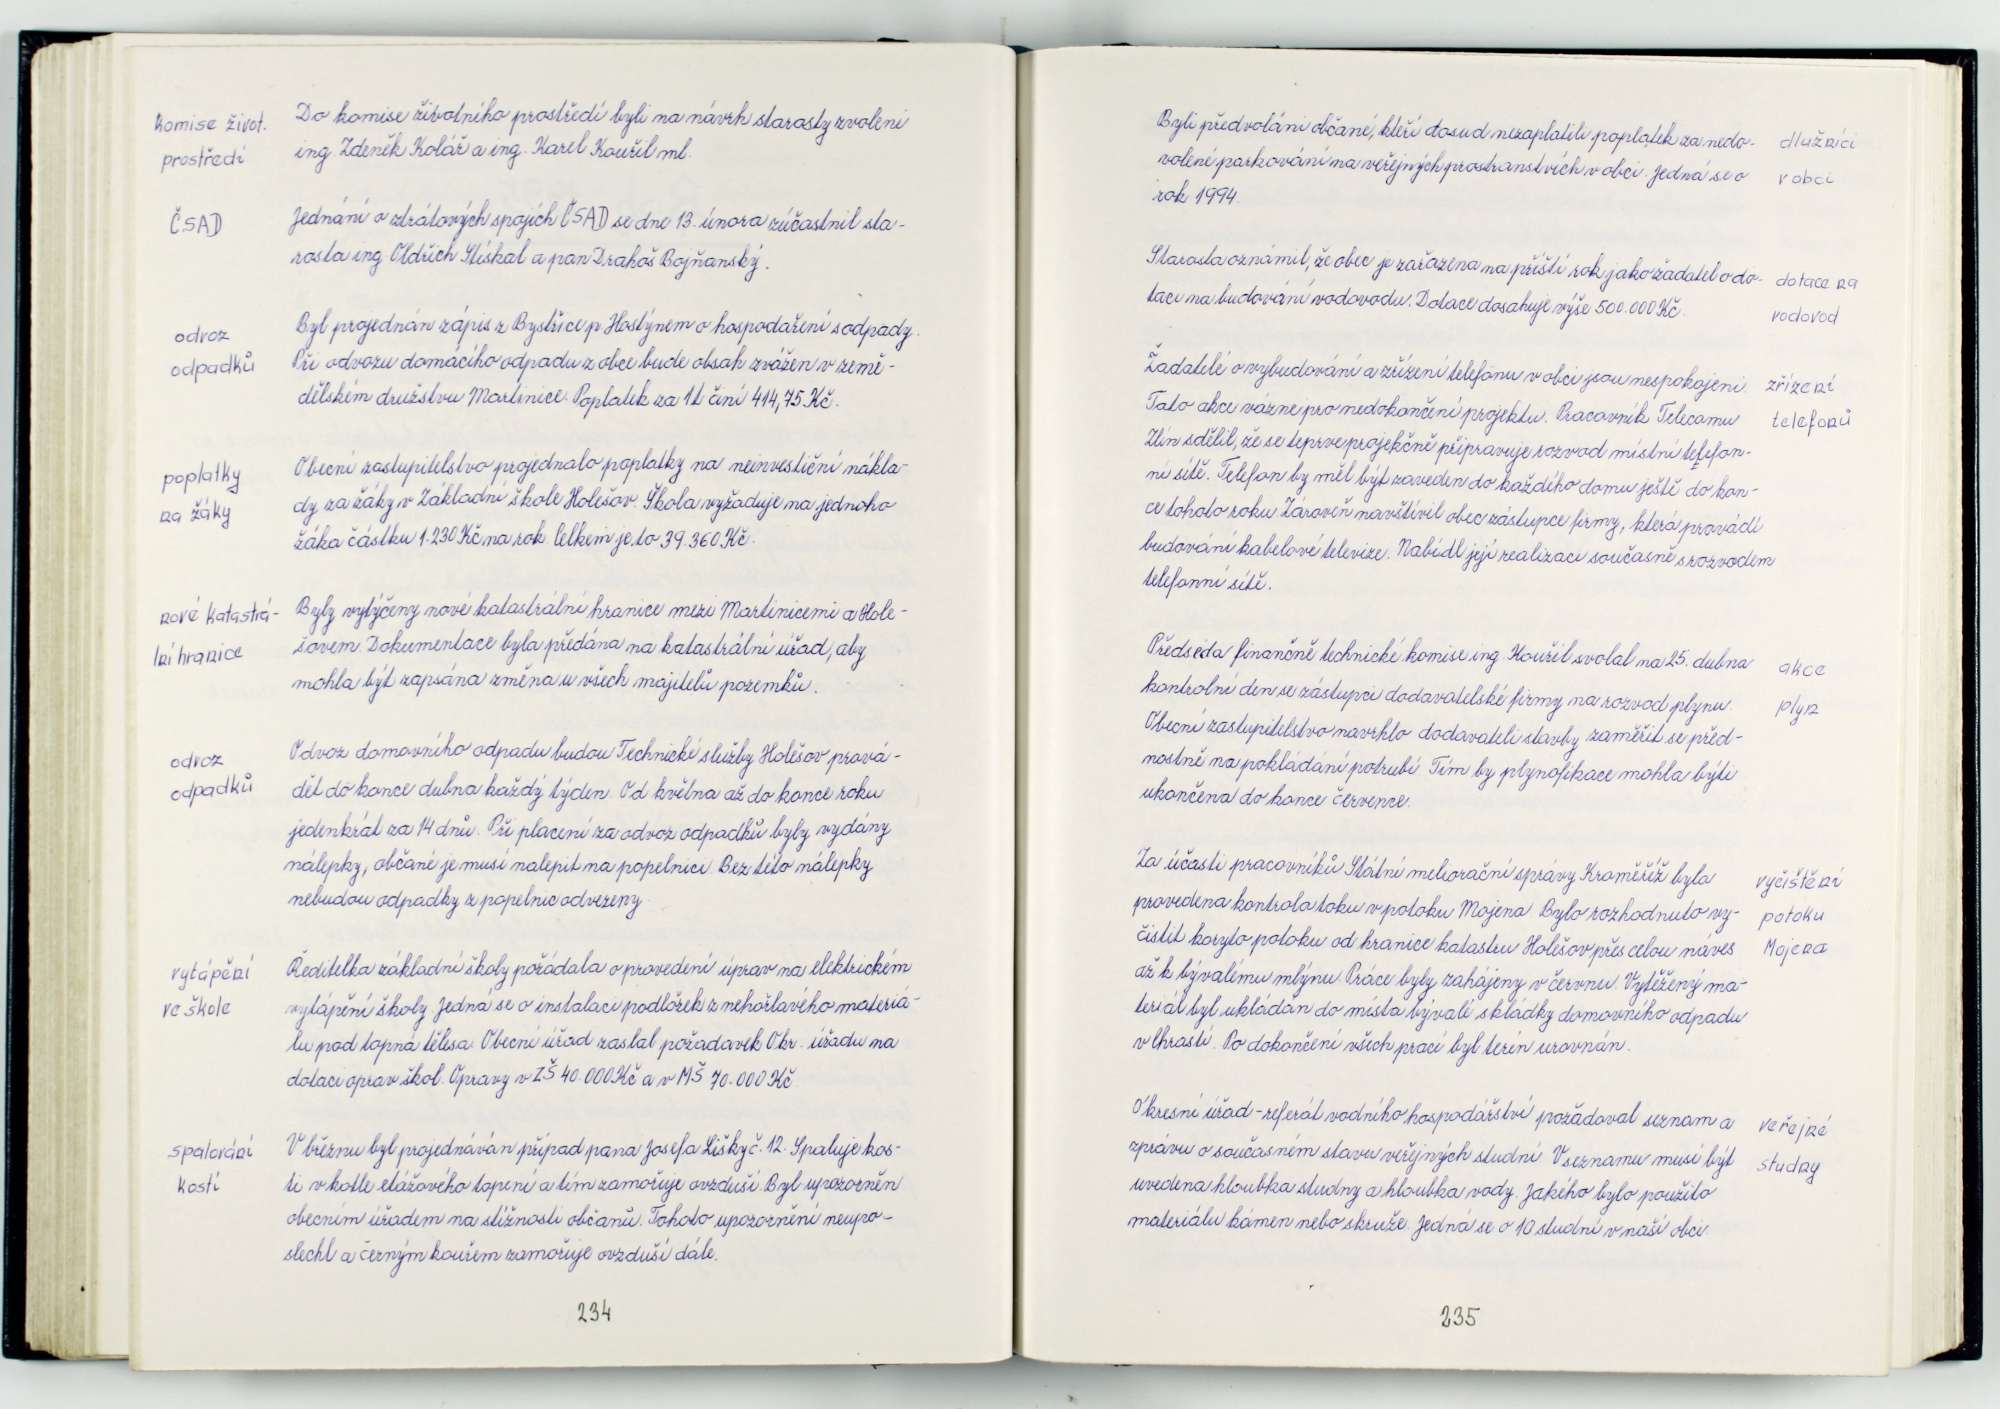 komise život.
prostředí
Do komise životního prostředí byli na návrh starosty zvoleni
ing. Zdeněk Kolář a ing. Karel Kouřil ml.
ČSAD
Jednání o ztrátových spojích ČSAD se dne 13. února zúčastnil sta-
rosta ing. Oldřich Stískal a pan Drahoš Bojňanský.
odvoz
odpadků
Byl projednán zápis z Bystřice p. Hostýnem o hospodaření s odpady.
Při odvozu domácího odpadu z obce bude obsah zvážen v země-
dělském družstvu Martinice. Poplatek za 1t činí 414,75 Kč.
poplatky
na žáky
Obecní zastupitelstvo projednalo poplatky na neinvestiční nákla-
dy za žáky v Základní škole Holešov. Škola vyžaduje na jednoho
žáka částku 1.230 Kč na rok. Celkem je to 39.360 Kč.
nové katastrá-
lní hranice
Byly vytýčeny nové katastrální hranice mezi Martinicemi a Hole-
šovem. Dokumentace byla předána na katastrální úřad, aby
mohla být zapsána změna u všech majitelů pozemků.
odvoz
odpadků
Odvoz domovního odpadu budou Technické služby Holešov prová-
dět do konce dubna každý týden. Od května až do konce roku
jedenkrát za 14 dnů. Při placení za odvoz odpadků byly vydány
nálepky, občané je musí nalepit na popelnici. Bez této nálepky
nebudou odpadky z popelnic odvezeny.
vytápění
ve škole
Ředitelka základní školy požádala o provedení úprav na elektrickém
vytápění školy. Jedná se o instalaci podložek z nehořlavého materiá-
lu pod topná tělesa. Obecní úřad zaslal požadavek Okr. úřadu na
dotaci oprav škol. Opravy v ZŠ 40.000 Kč a v MŠ 70.000 Kč.
spalování
kostí
V březnu byl projednáván případ pana Josefa Lišky č. 12. Spaluje kos-
ti v kotle etážového topení a tím zamořuje ovzduší. Byl upozorněn
obecním úřadem na stížnosti občanů. Tohoto upozornění neupo-
slechl a černým kouřem zamořuje ovzduší dále.
234
Byli předvoláni občané, kteří dosud nezaplatili poplatek za nedo-
volené parkování na veřejných prostranstvích v obci. Jedná se o
rok 1994.
dlužníci
v obci
Starosta oznámil, že obec je zařazena na příští rok jako žadatel o do-
taci na budování vodovodu. Dotace dosahuje výše 500.000 Kč.
dotace na
vodovod
Žadatelé o vybudování a zřízení telefonu v obci jsou nespokojeni.
Tato akce vázne pro nedokončení projektu. Pracovník Telecomu
Zlín sdělil, že se teprve projekčně připravuje rozvod místní telefon-
ní sítě. Telefon by měl být zaveden do každého domu ještě do kon-
ce tohoto roku. Zároveň navštívil obec zástupce firmy, která provádí
budování kabelové televize. Nabídl její realizaci současně s rozvodem
telefonní sítě.
zřízení
telefonů
Předseda finančně technické komise ing. Kouřil svolal na 25. dubna
kontrolní den se zástupci dodavatelské firmy na rozvod plynu.
Obecní zastupitelstvo navrhlo dodavateli stavby zaměřit se před-
nostně na pokládání potrubí. Tím by plynofikace mohla býti
ukončena do konce července.
akce
plyn
Za účasti pracovníků Státní meliorační správy Kroměříž byla
provedena kontrola toku v potoku Mojena. Bylo rozhodnuto vy-
čistit koryto potoku od hranice katastru Holešov přes celou náves
až k bývalému mlýnu. Práce byly zahájeny v červnu. Vytěžený ma-
teriál byl ukládán do místa bývalé skládky domovního odpadu
v Chrastí. Po dokončení všech prací byl terén urovnán.
vyčištění
potoku
Mojena
Okresní úřad - referát vodního hospodářství požadoval seznam a
zprávu o současném stavu veřejných studní. V seznamu musí být
uvedena hloubka studny a hloubka vody. Jakého bylo použito
materiálu kámen nebo skruže. Jedná se o 10 studní v naší obci.
veřejné
studny
235